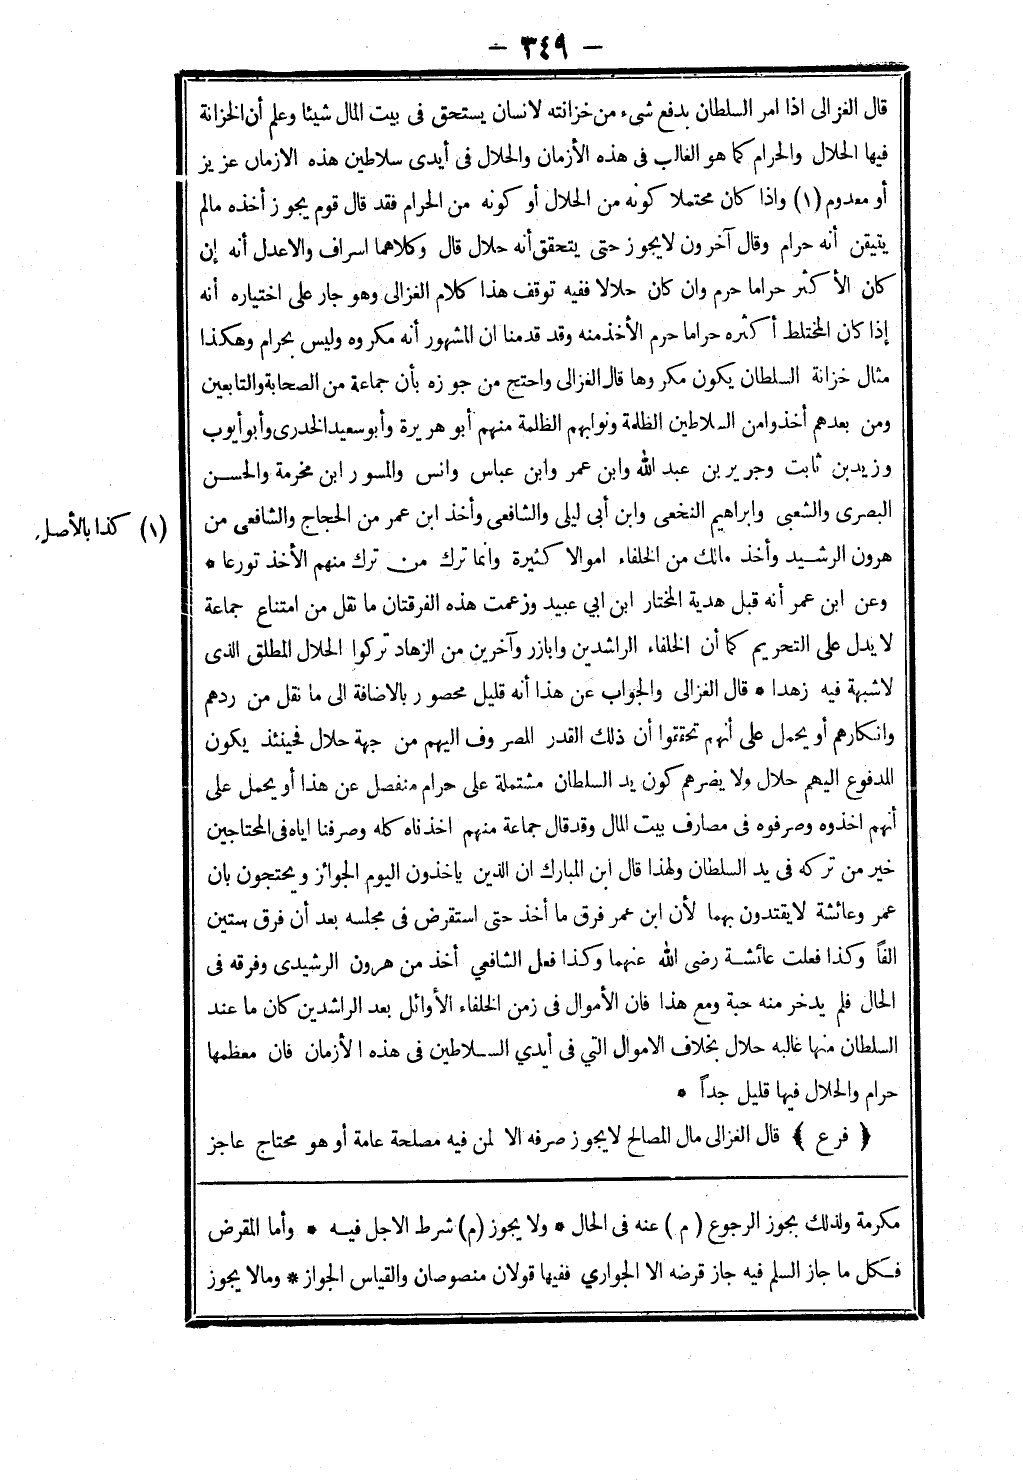 - ٣٤٩ -
قال الغزالى اذا امر السلطان بدفع شىء من خزانته لانسان يستحق فى بيت المال شيئا وعلم أن الخزانة
فيها الحلال والحرام كما هو الغالب فى هذه الأزمان والحلال فى أيدى سلاطين هذه الازمان عزيز
أو معدوم (١) واذا كان محتملا كونه من الحلال أو كونه من الحرام فقد قال قوم يجوز أخذه مالم
يتيقن أنه حرام وقال آخرون لايجوز حتى يتحقق أنه حلال قال وكلاهما اسراف والاعدل أنه إن
كان الأكثر حراما حرم وان كان حلالا ففيه توقف هذا كلام الغزالى وهو جار على اختياره أنه
إذا كان المختلط أكثره حراما حرم الأخذ منه وقد قدمنا ان المشهور أنه مكروه وليس بحرام وهكذا
مثال خزانة السلطان يكون مكروها قال الغزالى واحتج من جوزه بأن جماعة من الصحابة والتابعين
ومن بعدهم أخذوا من السلاطين الظلمة ونوابهم الظلمة منهم أبو هريرة وأبو سعيد الخدرى وأبو أيوب
وزيد بن ثابت وجرير بن عبد الله وابن عمر وابن عباس وانس والمسور ابن مخرمة والحسن
البصرى والشعبى وابراهيم النخعى وابن أبى ليلى والشافعى وأخذ ابن عمر من الحجاج والشافعى من
(١) كذا بالأصل
هرون الرشيد وأخذ مالك من الخلفاء اموالا كثيرة وانما ترك من ترك منهم الأخذ تورعا *
وعن ابن عمر أنه قبل هدية المختار ابن ابي عبيد وزعمت هذه الفرقتان ما نقل من امتناع جماعة
لايدل على التحريم كما أن الخلفاء الراشدين وابازر وآخرين من الزهاد تركوا الحلال المطلق الذى
لاشبهة فيه زهدا * قال الغزالى والجواب عن هذا أنه قليل محصور بالاضافة الى ما نقل من ردهم
وانكارهم أو يحمل على أنهم تحققوا أن ذلك القدر المصروف اليهم من جهة حلال فحينئذ يكون
المدفوع اليهم حلال ولا يضرهم كون يد السلطان مشتملة على حرام منفصل عن هذا أو يحمل على
أنهم اخذوه وصرفوه فى مصارف بيت المال وقد قال جماعة منهم اخذناه كله وصرفنا اياه فى المحتاجين
خير من تركه فى يد السلطان ولهذا قال ابن المبارك ان الذين ياخذون اليوم الجوائز ويحتجون بان
عمر وعائشة لايقتدون بهما لأن ابن عمر فرق ما أخذ حتى استقرض فى مجلسه بعد أن فرق ستين
الفاً وكذا فعلت عائشة رضى الله عنهما وكذا فعل الشافعي أخذ من هرون الرشيدى وفرقه فى
الحال فلم يدخر منه حبة ومع هذا فان الأموال فى زمن الخلفاء الأوائل بعد الراشدين كان ما عند
السلطان منها غالبه حلال بخلاف الاموال التي فى أيدي السلاطين فى هذه الأزمان فان معظمها
حرام والحلال فيها قليل جداً *
﴿ فرع ﴾ قال الغزالى مال المصالح لايجوز صرفه الا لمن فيه مصلحة عامة أو هو محتاج عاجز
مكرمة ولذلك يجوز الرجوع (م) عنه فى الحال * ولا يجوز (م) شرط الاجل فيه * وأما المقرض
فكل ما جاز السلم فيه جاز قرضه الا الجواري ففيها قولان منصوصان والقياس الجواز * ومالا يجوز